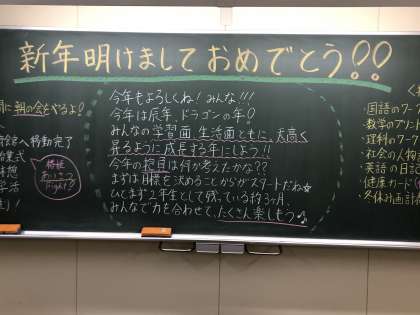 新年明けましておめでとう!!
に朝の会をやるよ!
へ移動完了
業式
積極
あいさつ
Fight!!
今年もよろしくね!みんな!!!
今年は辰年、ドラゴンの年!
みんなの学習面、生活面ともに、天高く
昇るように成長する年にしよう!!
今年の抱負は何か考えたかな??
まずは目標を決めることからがスタートだね☆
ひとまず2年生として残っている約3ヶ月、
みんなで力を合わせて、たくさん楽しもう♪
・国語のワーク
・数学のプリント
・理科のワーク
・社会の人物
・英語の日記
・健康カード
・冬休み計画